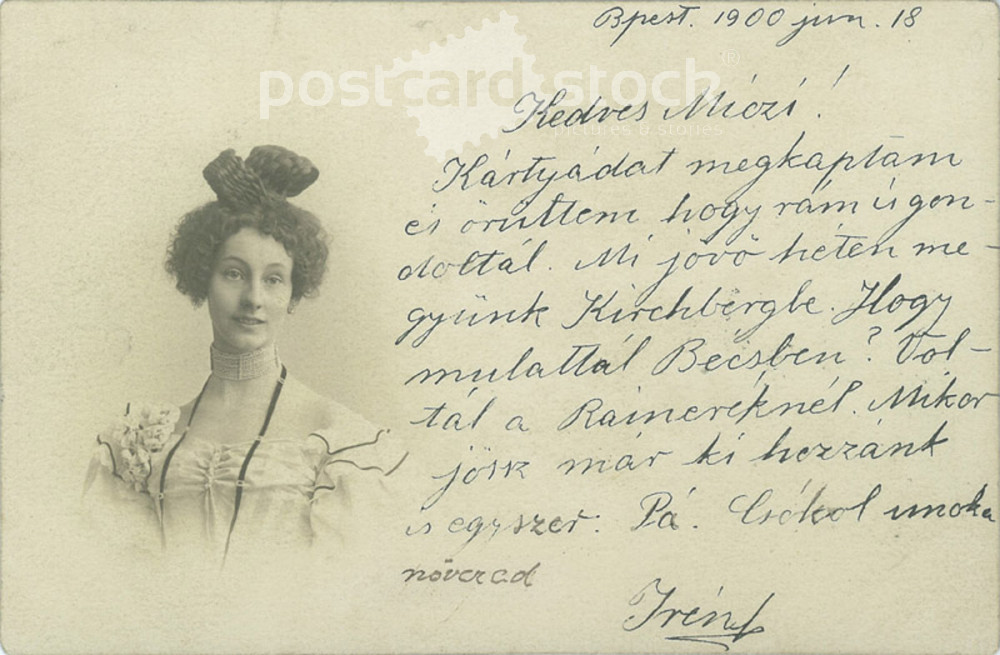 Bpest. 1900 jun. 18
postcard stock®
pictures & stories
Kedves Miczi!
Kártyádat megkaptam
és örültem hogy rám is gon-
doltál. Mi jövő héten me-
gyünk Kirchbergbe. Hogy
mulattál Bécsben? Vol-
tál a Raineréknél. Mikor
jösz már ki hozzánk
is egyszer. Pá. Csókol unoka
nővered
Irén